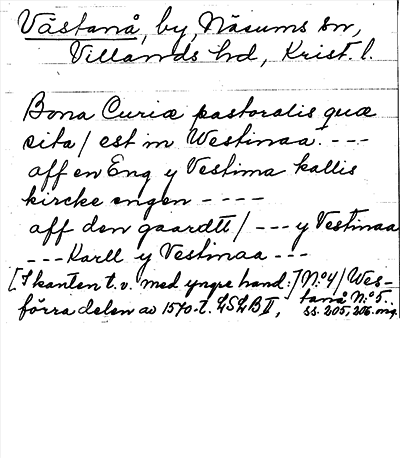 Västanå, by, Näsums sn,
Villands hd, Krist. l.
Bona Curiæ pastoralis quæ
sita/ est in Westinaa. ---
aff en Eng y Vestina kallis
kircke engen ----
aff den gaardtt/ --- y Vestinaa
--- Karll y Vestinaa ---
[I kanten t.v. med yngre hand:] N:o 4/ Wes-
tanå N:o 5.
förra delen av 1570-t. LSLB II, ss. 205, 206. orig.